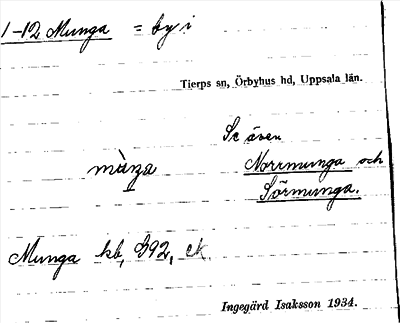 1-12 Munga = by i
Tierps sn, Örbyhus hd, Uppsala län.
Se även
mùŋa Norrmunga och
Sörmunga.
Munga kb, 392, ek
Ingegärd Isaksson 1934.